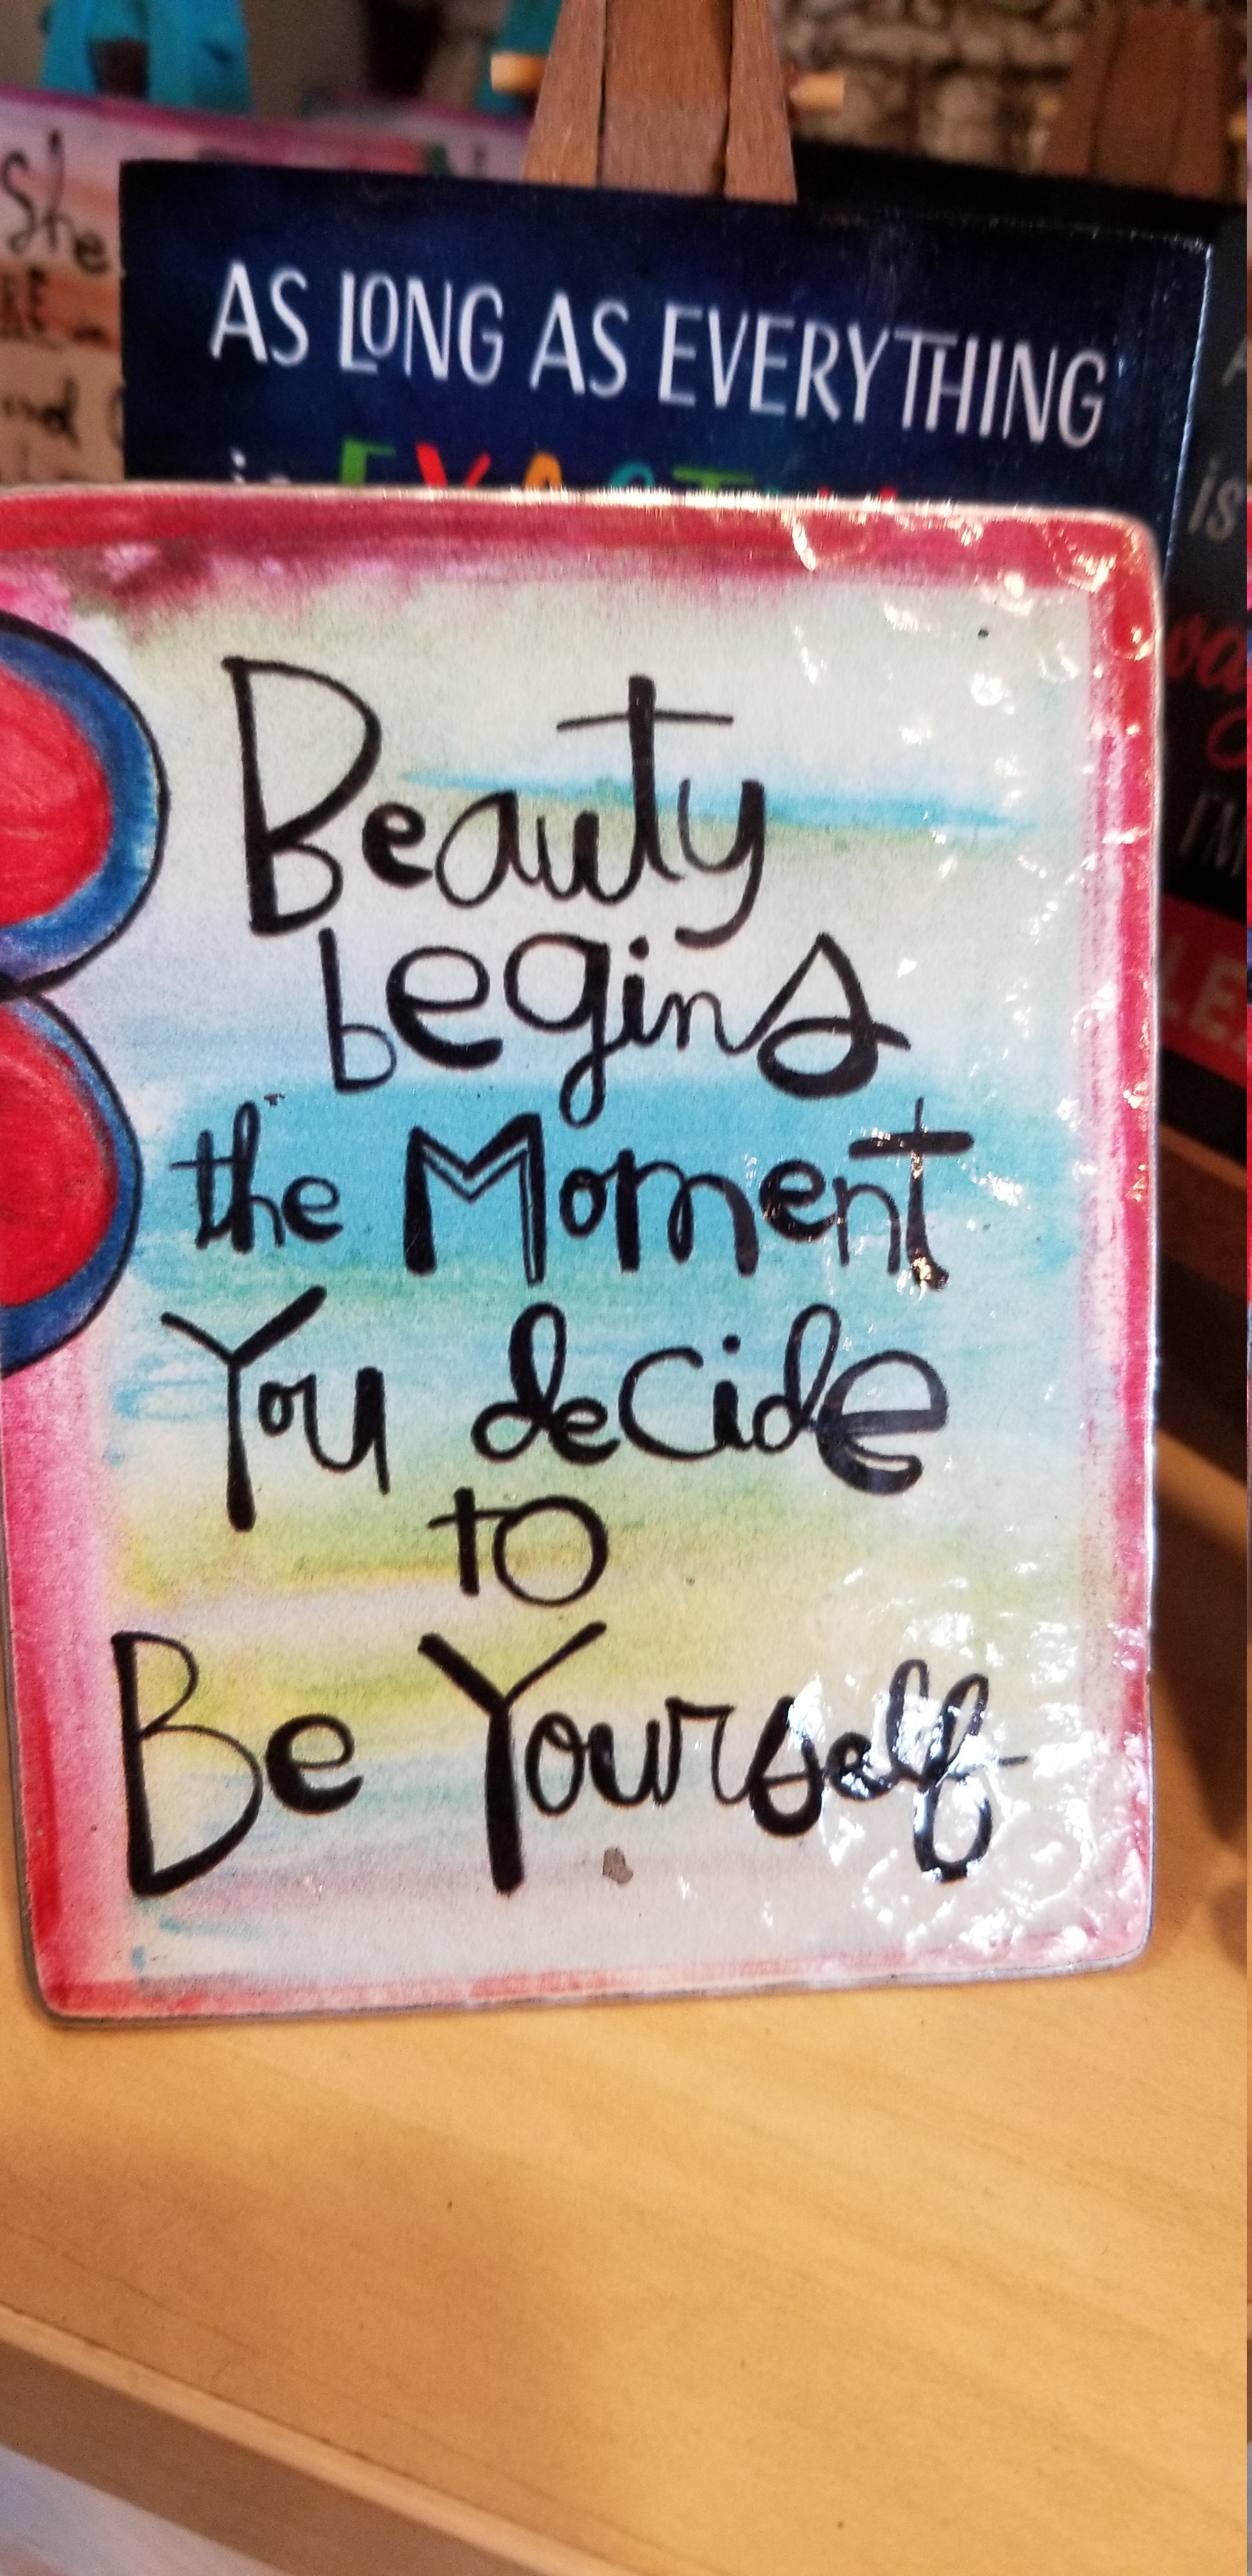 She
AS LONG AS EVERYTHING
is EXACTLY
Beauty
begins
the Moment
You decide
to
Be Yourself
is
I'M